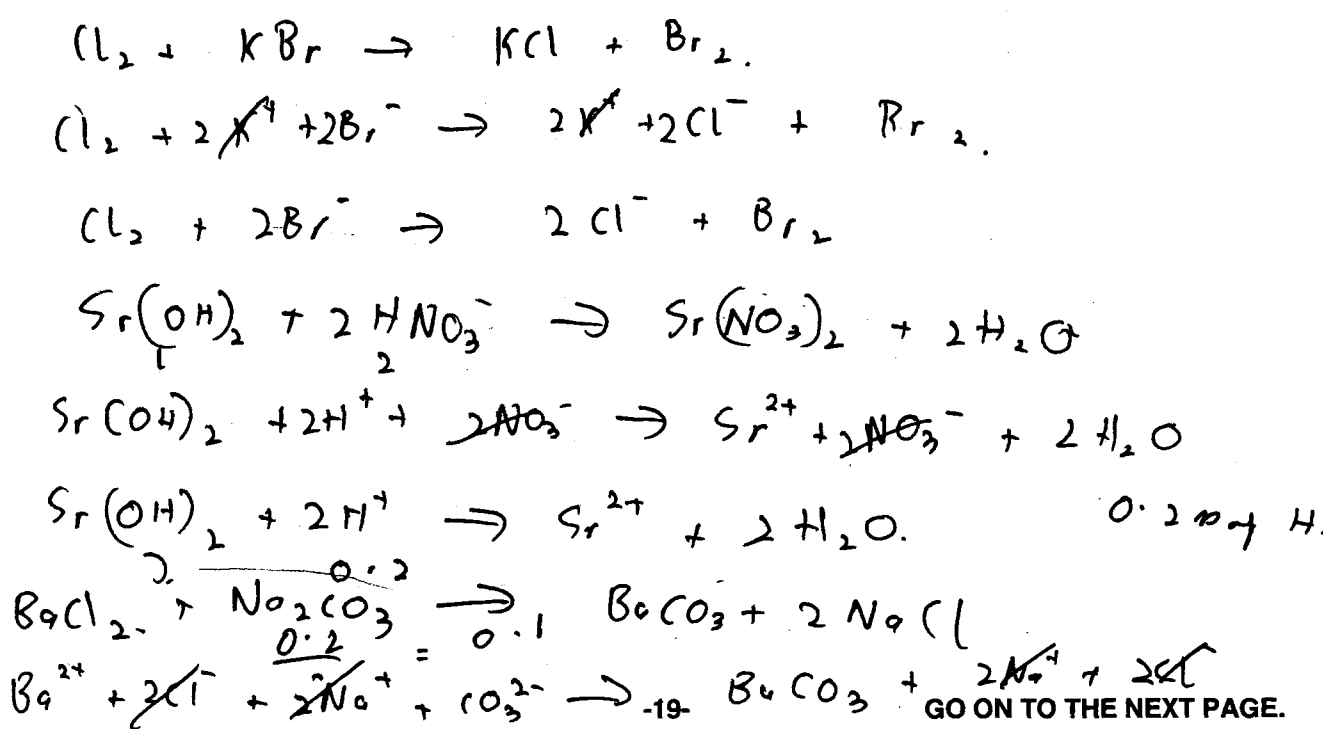 Cl₂ + KBr → KCl + Br₂.
Cl₂ + 2K⁺ + 2Br⁻ → 2K⁺ + 2Cl⁻ + Br₂.
Cl₂ + 2Br⁻ → 2Cl⁻ + Br₂
Sr(OH)₂ + 2HNO₃⁻ → Sr(NO₃)₂ + 2H₂O
1 2
Sr(OH)₂ + 2H⁺ + 2NO₃⁻ → Sr²⁺ + 2NO₃⁻ + 2H₂O
Sr(OH)₂ + 2H⁺ → Sr²⁺ + 2H₂O. 0.2 H.
0.2
BaCl₂ + Na₂CO₃ → BaCO₃ + 2NaCl
0.2 = 0.1
Ba²⁺ + 2Cl⁻ + 2Na⁺ + CO₃²⁻ → BaCO₃ + 2Na⁺ + 2Cl⁻
-19-
GO ON TO THE NEXT PAGE.